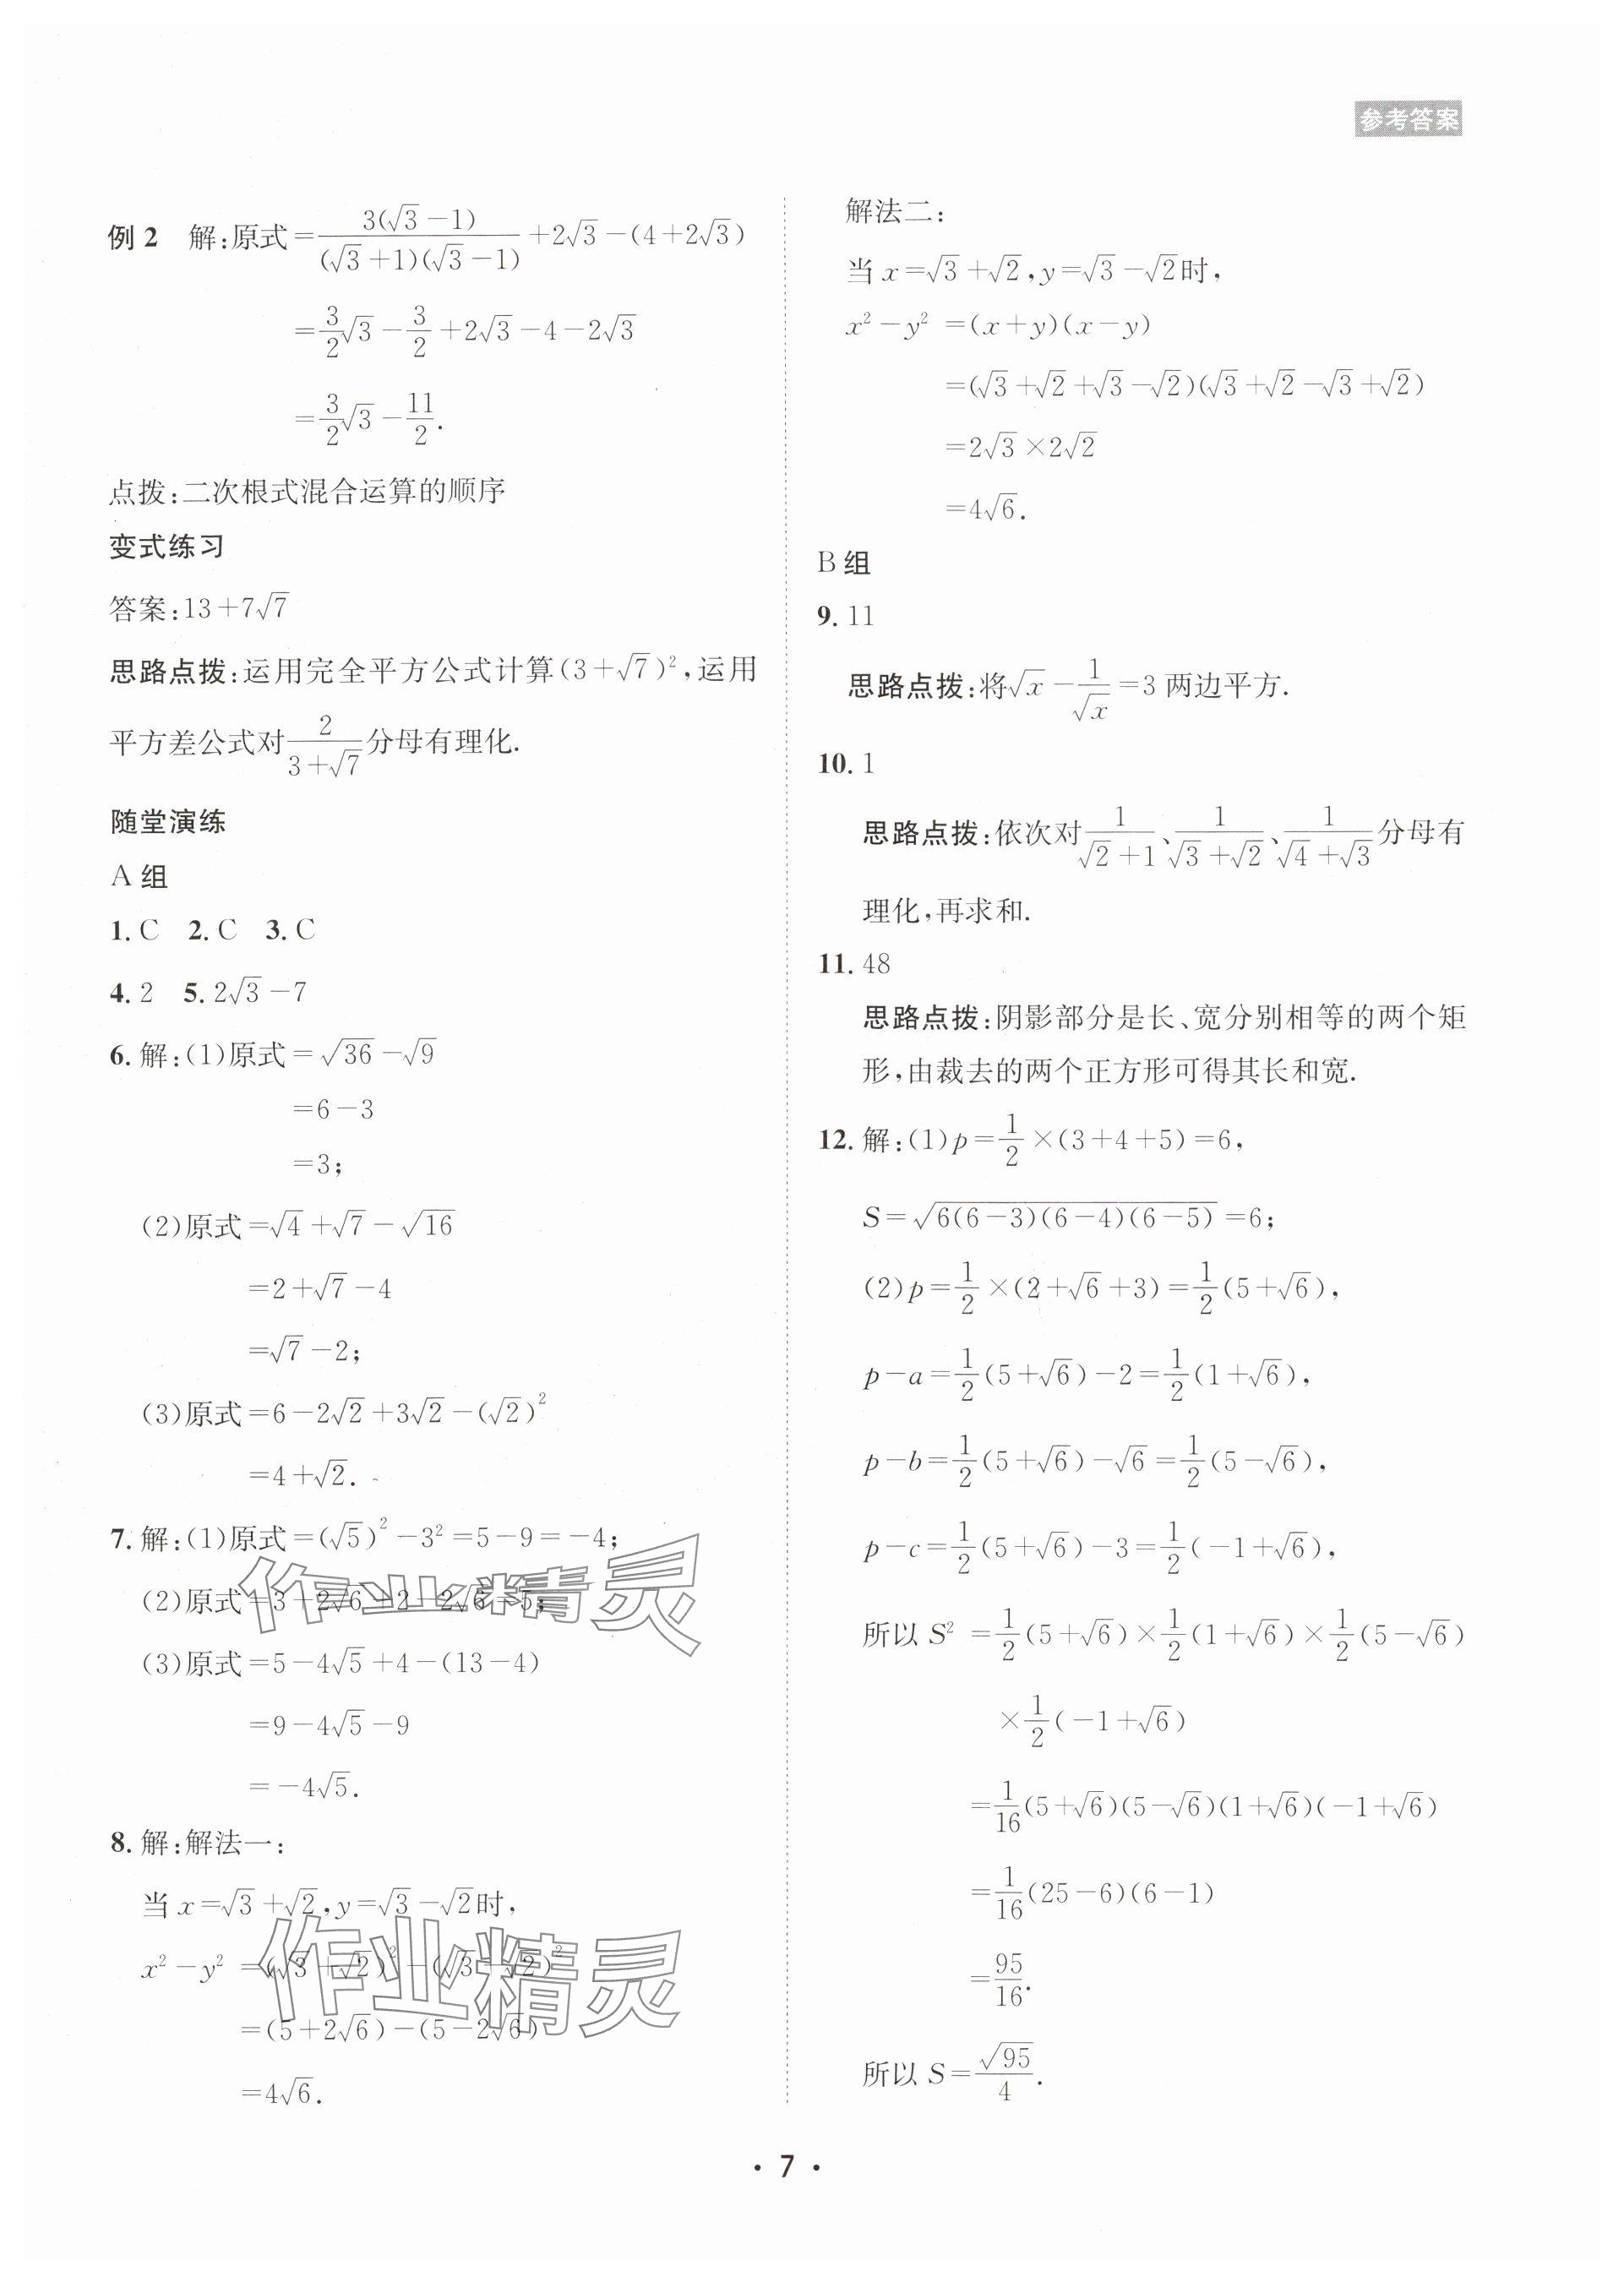 参考答案
例2 解:原式=\frac{3(√3-1)}{(√3+1)(√3-1)}+2√3-(4+2√3)
=\frac{3}{2}√3-\frac{3}{2}+2√3-4-2√3
=\frac{3}{2}√3-\frac{11}{2}.
点拨:二次根式混合运算的顺序
变式练习
答案:13+7√7
思路点拨:运用完全平方公式计算(3+√7)²,运用
平方差公式对\frac{2}{3+√7}分母有理化.
随堂演练
A组
1.C 2.C 3.C
4.2 5.2√3-7
6.解:(1)原式=√36-√9
=6-3
=3;
(2)原式=√4+√7-√16
=2+√7-4
=√7-2;
(3)原式=6-2√2+3√2-(√2)²
=4+√2.
7.解:(1)原式=(√5)²-3²=5-9=-4;
(2)原式=3+2√6+2-2√6=5;
(3)原式=5-4√5+4-(13-4)
=9-4√5-9
=-4√5.
8.解:解法一:
当x=√3+√2,y=√3-√2时,
x²-y²=(√3+√2)²-(√3-√2)²
=(5+2√6)-(5-2√6)
=4√6.
解法二:
当x=√3+√2,y=√3-√2时,
x²-y²=(x+y)(x-y)
=(√3+√2+√3-√2)(√3+√2-√3+√2)
=2√3×2√2
=4√6.
B组
9.11
思路点拨:将√x-\frac{1}{√x}=3两边平方.
10.1
思路点拨:依次对\frac{1}{√2+1}、\frac{1}{√3+√2}、\frac{1}{√4+√3}分母有
理化,再求和.
11.48
思路点拨:阴影部分是长、宽分别相等的两个矩
形,由裁去的两个正方形可得其长和宽.
12.解:(1)p=\frac{1}{2}×(3+4+5)=6,
S=√{6(6-3)(6-4)(6-5)}=6;
(2)p=\frac{1}{2}×(2+√6+3)=\frac{1}{2}(5+√6),
p-a=\frac{1}{2}(5+√6)-2=\frac{1}{2}(1+√6),
p-b=\frac{1}{2}(5+√6)-√6=\frac{1}{2}(5-√6),
p-c=\frac{1}{2}(5+√6)-3=\frac{1}{2}(-1+√6),
所以S²=\frac{1}{2}(5+√6)×\frac{1}{2}(1+√6)×\frac{1}{2}(5-√6)
×\frac{1}{2}(-1+√6)
=\frac{1}{16}(5+√6)(5-√6)(1+√6)(-1+√6)
=\frac{1}{16}(25-6)(6-1)
=\frac{95}{16}.
所以S=\frac{√95}{4}.
作业精灵
作业精灵
· 7 ·